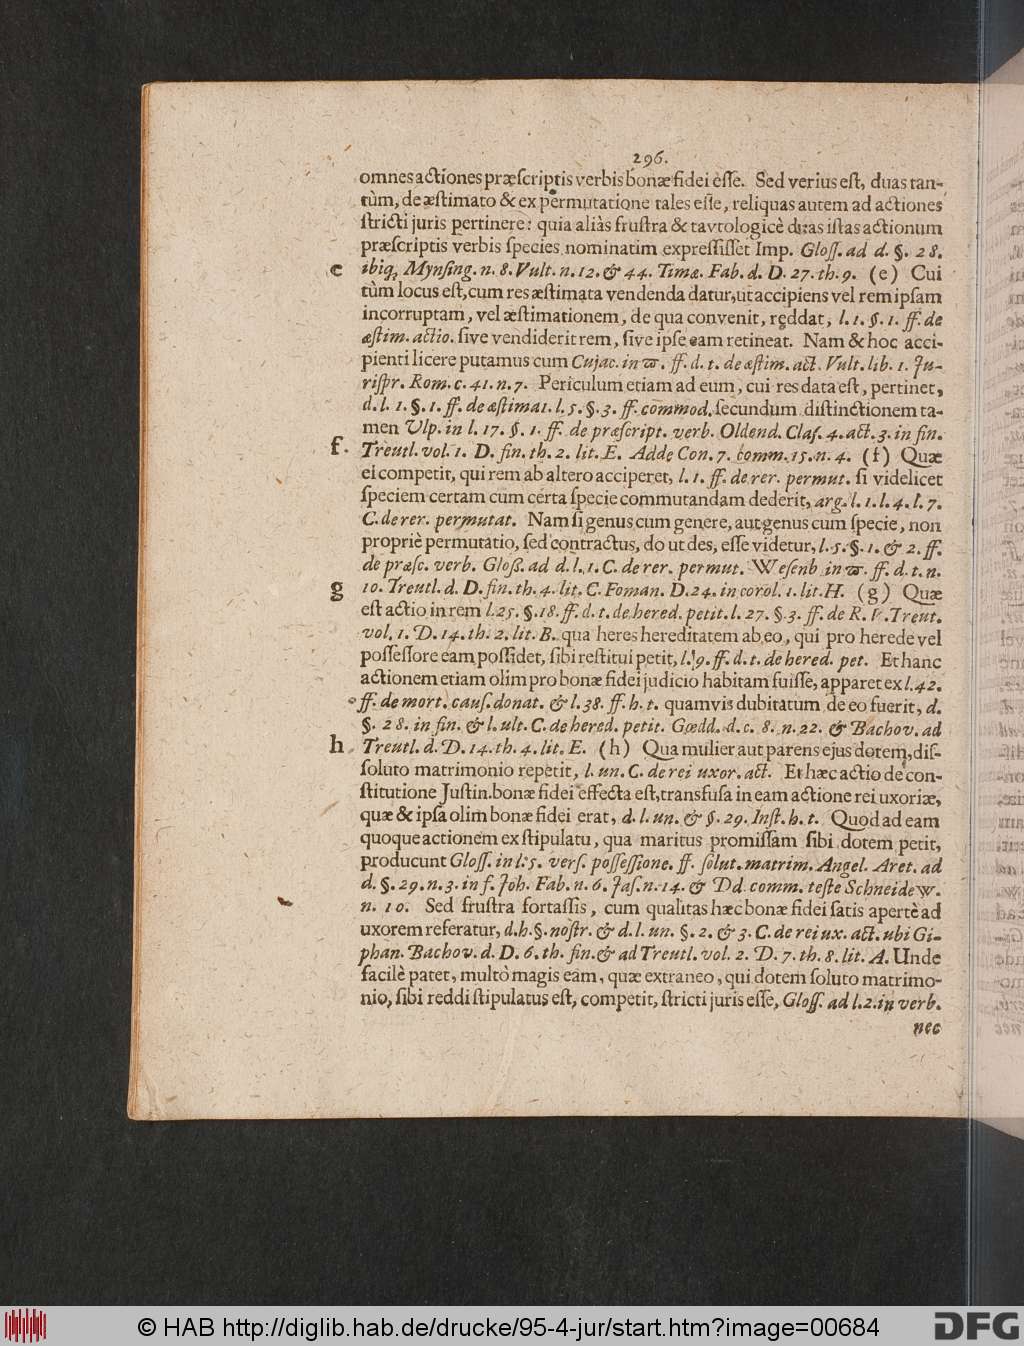 296.
omnes actiones præſcriptis verbis bonæ fidei èſſe. Sed verius eſt, duas tan-
tùm, de æſtimato & ex permutatione tales eſſe, reliquas autem ad actiones
ſtricti juris pertinere: quia aliàs fruſtra & tavtologicè duas iſtas actionum
præſcriptis verbis ſpecies nominatim expreſſiſſet Imp. Gloſſ. ad d. §. 28.
e ibiq; Mynſing. n. 8. Vult. n. 12. & 44. Timæ. Fab. d. D. 27. th. 9. (e) Cui
tùm locus eſt, cum res æſtimata vendenda datur, ut accipiens vel rem ipſam
incorruptam, vel æſtimationem, de qua convenit, reddat, l. 1. §. 1. ff. de
æſtim. actio. ſive vendiderit rem, ſive ipſe eam retineat. Nam & hoc acci-
pienti licere putamus cum Cujac. in ϖ. ff. d. t. de æſtim. act. Vult. lib. 1. Ju-
riſpr. Rom. c. 41. n. 7. Periculum etiam ad eum, cui res data eſt, pertinet,
d. l. 1. §. 1. ff. de æſtimat. l. 5. §. 3. ff. commod. ſecundum diſtinctionem ta-
men Vlp. in l. 17. §. 1. ff. de præſcript. verb. Oldend. Claſ. 4. act. 3. in fin.
f. Treutl. vol. 1. D. fin. th. 2. lit. E. Adde Con. 7. comm. 15. n. 4. (f) Quæ
ei competit, qui rem ab altero acciperet, l. 1. ff. de rer. permut. ſi videlicet
ſpeciem certam cum certa ſpecie commutandam dederit, arg. l. 1. l. 4. l. 7.
C. de rer. permutat. Nam ſi genus cum genere, aut genus cum ſpecie, non
propriè permutatio, ſed contractus, do ut des, eſſe videtur, l. 5. §. 1. & 2. ff.
de præſc. verb. Gloß. ad d. l. 1. C. de rer. permut. Weſenb in ϖ. ff. d. t. n.
g 10. Treutl. d. D. fin. th. 4. lit. C. Foman. D. 24. in corol. 1. lit. H. (g) Quæ
eſt actio in rem l. 25. §. 18. ff. d. t. de hered. petit. l. 27. §. 3. ff. de R. V. Treut.
vol. 1. D. 14. th. 2. lit. B. qua heres hereditatem ab eo, qui pro herede vel
poſſeſſore eam poſſidet, ſibi reſtitui petit, l. 9. ff. d. t. de hered. pet. Et hanc
actionem etiam olim pro bonæ fidei judicio habitam fuiſſe, apparet ex l. 42.
ff. de mort. cauſ. donat. & l. 38. ff. h. t. quamvis dubitatum de eo fuerit, d.
§. 28. in fin. & l. ult. C. de hered. petit. Gœdd. d. c. 8. n. 22. & Bachov. ad
h. Treutl. d. D. 14. th. 4. lit. E. (h) Qua mulier aut parens ejus dotem, diſ-
ſoluto matrimonio repetit, l. un. C. de rei uxor. act. Et hæc actio de con-
ſtitutione Juſtin. bonæ fidei effecta eſt, transfuſa in eam actione rei uxoriæ,
quæ & ipſa olim bonæ fidei erat, d. l. un. & §. 29. Inſt. h. t. Quod ad eam
quoque actionem ex ſtipulatu, qua maritus promiſſam ſibi dotem petit,
producunt Gloſſ. in l. 5. verſ. poſſeſſione. ff. ſolut. matrim. Angel. Aret. ad
d. §. 29. n. 3. in f. Joh. Fab. n. 6. Jaſ. n. 14. & Dd. comm. teſte Schneidew.
n. 10. Sed fruſtra fortaſſis, cum qualitas hæc bonæ fidei ſatis apertè ad
uxorem referatur, d. h. §. noſtr. & d. l. un. §. 2. & 3. C. de rei ux. act. ubi Gi-
phan. Bachov. d. D. 6. th. fin. & ad Treutl. vol. 2. D. 7. th. 8. lit. A. Unde
facilè patet, multò magis eam, quæ extraneo, qui dotem ſoluto matrimo-
nio, ſibi reddi ſtipulatus eſt, competit, ſtricti juris eſſe, Gloſſ. ad l. 2. in verb.
nec
© HAB http://diglib.hab.de/drucke/95-4-jur/start.htm?image=00684
DFG